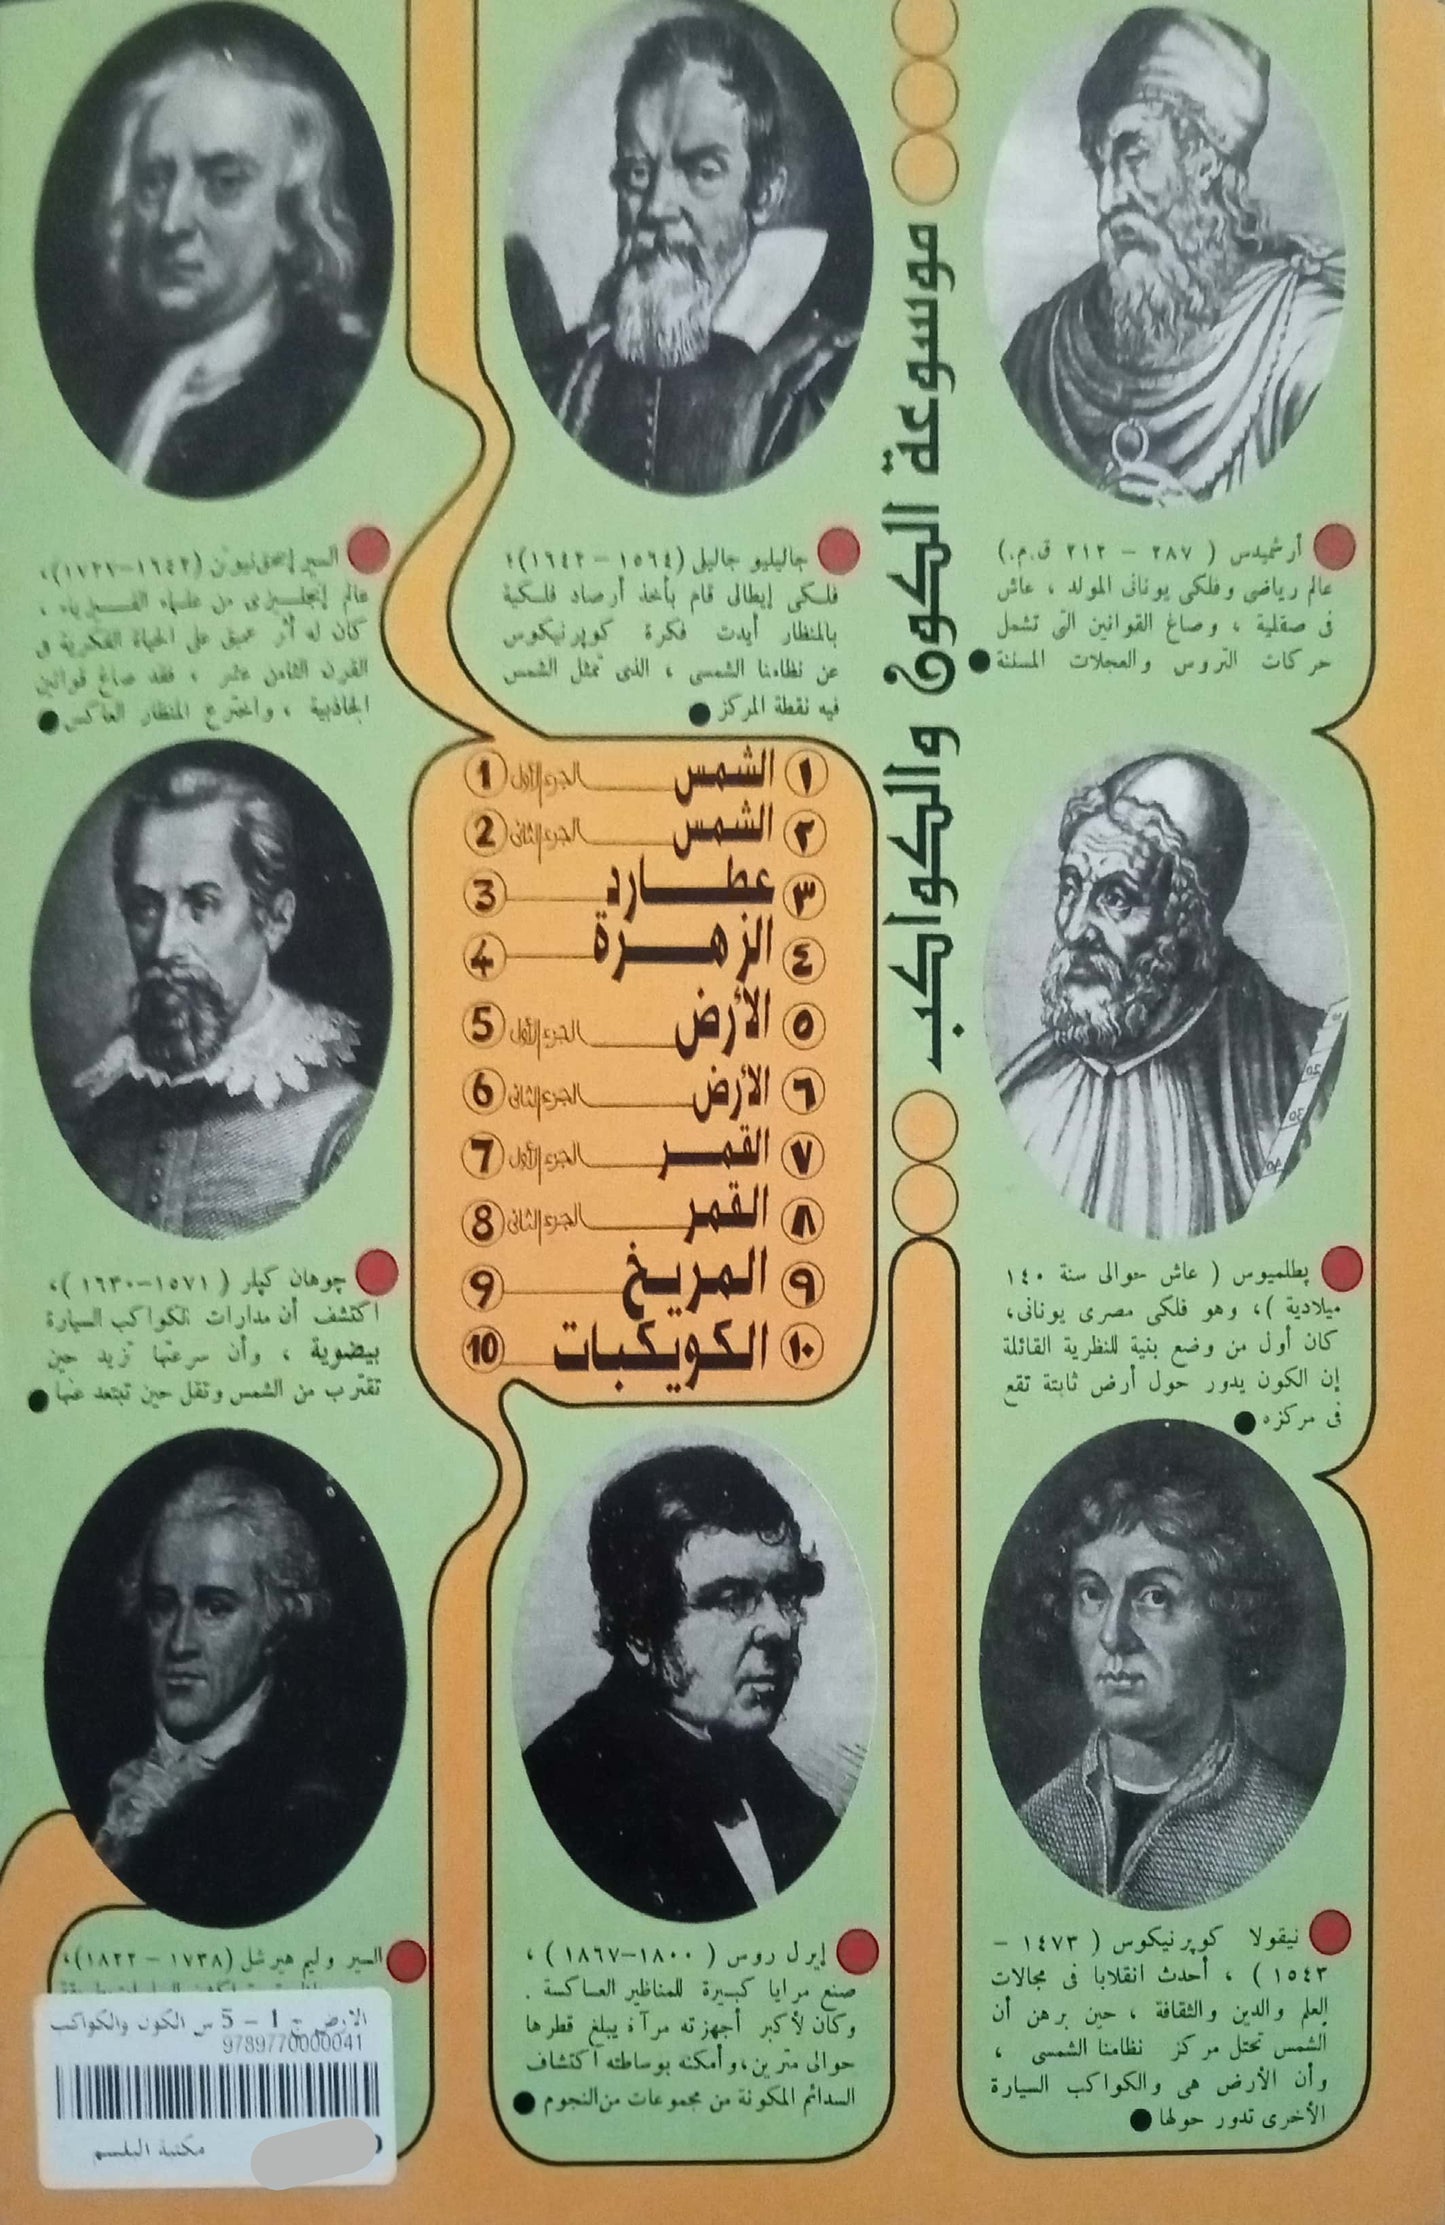 موسوعة الكون والكواكب
أرشميدس ( ٢٨٧ – ٢١٢ ق.م.)
عالم رياضى وفلكى يونانى المولد ، عاش
فى صقلية ، وصاغ القوانين التى تشمل
حركات التروس والعجلات المسننة
بطلميوس ( عاش حوالى سنة ١٤٠
ميلادية )، وهو فلكى مصرى يونانى،
كان أول من وضع بنية للنظرية القائلة
إن الكون يدور حول أرض ثابتة تقع
فى مركزه
نيقولا كوپرنيكوس ( ١٤٧٣ –
١٥٤٣ ) ، أحدث انقلابا فى مجالات
العلم والدين والثقافة ، حين برهن أن
الشمس تحتل مركز نظامنا الشمسى ،
وأن الأرض هى والكواكب السيارة
الأخرى تدور حولها
جاليليو جاليلى (١٥٦٤ – ١٦٤٢)؛
فلكى إيطالى قام بأخذ أرصاد فلكية
بالمنظار أيدت فكرة كوپرنيكوس
عن نظامنا الشمسى ، الذى تمثل الشمس
فيه نقطة المركز
١ الشمس الجزء الأول 1
٢ الشمس الجزء الثانى 2
٣ عطارد 3
٤ الزهرة 4
٥ الأرض الجزء الأول 5
٦ الأرض الجزء الثانى 6
٧ القمر الجزء الأول 7
٨ القمر الجزء الثانى 8
٩ المريخ 9
١٠ الكويكبات 10
إيرل روس ( ١٨٠٠–١٨٦٧ ) ،
صنع مرايا كبيرة للمناظير العاكسة .
وكان لأكبر أجهزته مرآة يبلغ قطرها
حوالى مترين، وأمكنه بوساطته اكتشاف
السدائم المكونة من مجموعات من النجوم
السير إسحق نيوتن (١٦٤٢–١٧٢٧)،
عالم إنجليزى من علماء الفيزياء ،
كان له أثر عميق على الحياة الفكرية فى
القرن الثامن عشر ، فقد صاغ قوانين
الجاذبية ، واخترع المنظار العاكس
چوهان كپلر ( ١٥٧١–١٦٣٠ )،
اكتشف أن مدارات الكواكب السيارة
بيضوية ، وأن سرعتها تزيد حين
تقترب من الشمس وتقل حين تبتعد عنها
السير وليم هيرشل (١٧٣٨ – ١٨٢٢)،
الارض ج 1 - 5 س الكون والكواكب
9789770000041
مكتبة البلسم